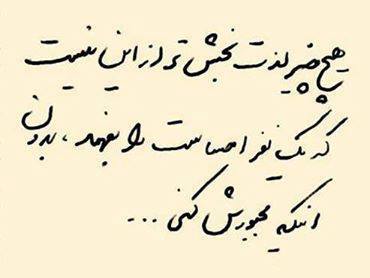 هیچ چیز لذت بخش تر از این نیست
که یک نفر احساست را بفهمد ، بدون
اینکه مجبورش کنی ...